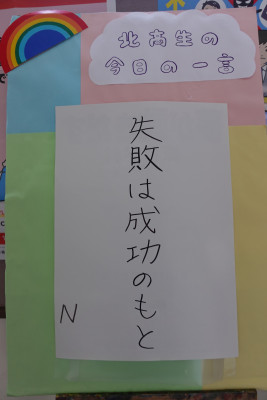 北高生の
今日の一言
失敗は成功のもと
N